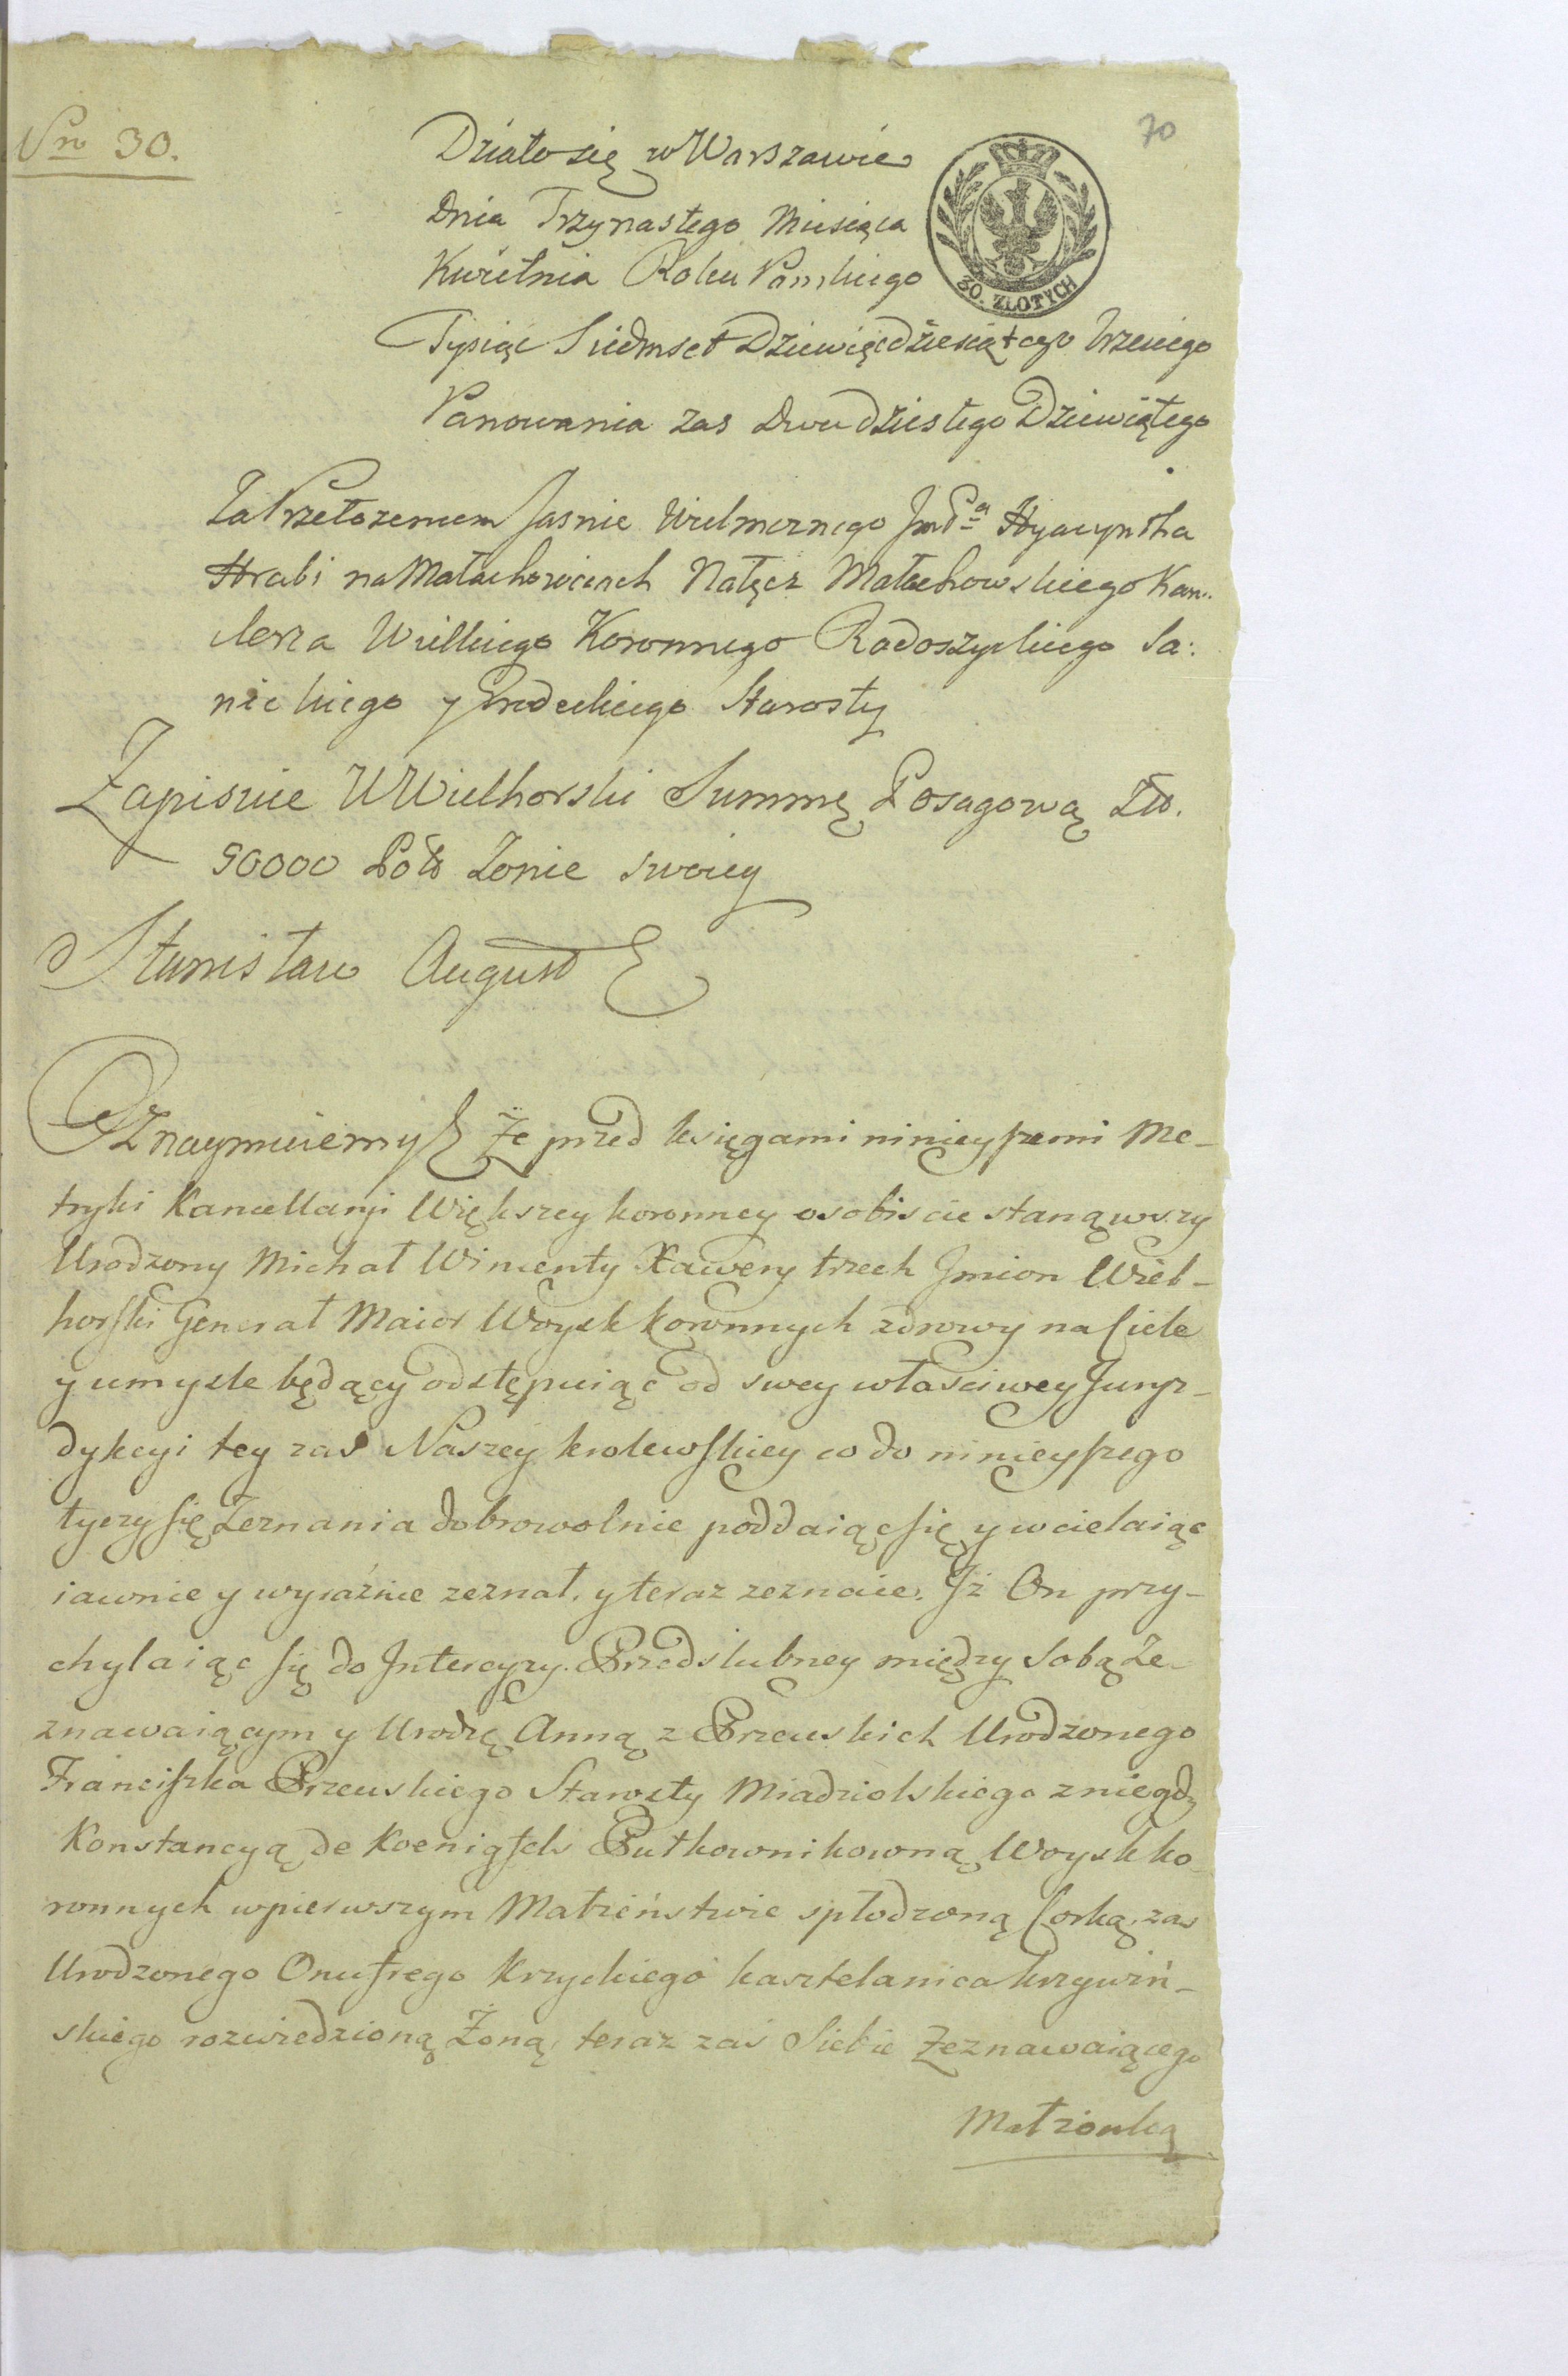 Nro 30.
70
Działo się w Warszawie
Dnia Trzynastego Miesiąca
Kwietnia Roku Pańskiego
30. ZŁOTYCH
Tysiąc Siedmset Dziewięcdziesiątego trzeciego
Panowania zas Dwudziestego Dziewiątego
Za Przełożeniem Jasnie Wielmoznego Jmć Pa Hyacyntha
Hrabi na Małachowicach Nałęcz Małachowskiego Kan-
clerza Wielkiego Koronnego Radoszyckiego Sa:
nickiego y Grodeckiego Starosty
Zapisuie W Wielhorski Summę Posagową Zł.
90000 Pol Zonie swoiey
Stanisław August
Oznaymuiemy Że przed księgami ninieyszemi Me-
tryki Kancellaryi Większey koronney osobiscie stanąwszy
Urodzony Michał Wincenty Xawery trzech Jmion Wiel-
horski Generał Maior Woysk koronnych zdrowy na Ciele
y umysle będący odstępuiąc od swey własciwey Juryz-
dykcyi tey zas Naszey krolewskiey co do ninieyszego
tyczy się Zeznania dobrowolnie poddaiąc się y wcielaiąc
iawnie y wyraźnie zeznał. y teraz zeznaie. Jż On przy-
chylaiąc się do Jntercyzy Przedslubney między Sobą Ze-
znawaiącym y Urodzą Anną z Przeuskich Urodzonego
Franciszka Przeuskiego Starosty Miadziolskiego z niegdy
Konstancyą de Koenigsels Pułkownikowną Woysk ko-
ronnych w pierwszym Małżeństwie spłodzoną Corką, zas
Urodzonego Onufrego Krzyckiego kasztelanica krzywiń-
skiego rozwiedzioną Żoną, teraz zaś Siebie Zeznawaiącego
Małżonką